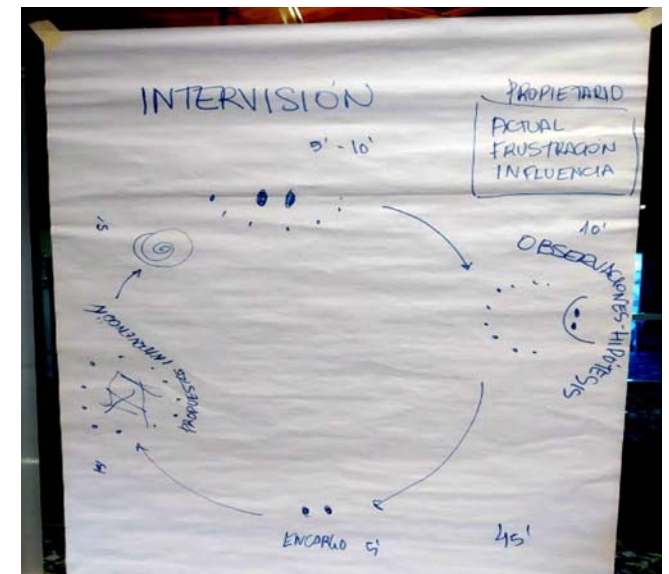 INTERVISIÓN
5' - 10'
PROPIETARIO
ACTUAL
FRUSTRACIÓN
INFLUENCIA
10'
OBSERVACIONES-HIPÓTESIS
ENCARGO 5'
45'
PROPUESTAS INTERVENCIÓN
5'